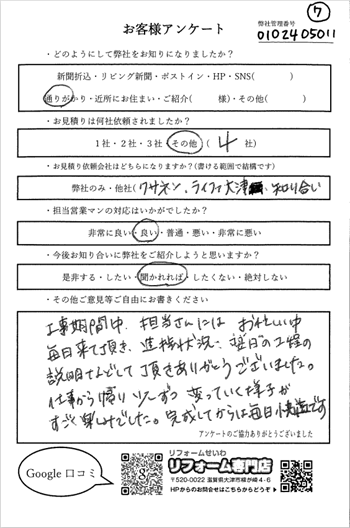 ⑦
お客様アンケート
弊社管理番号
0102405011
・どのようにして弊社をお知りになりましたか？
新聞折込・リビング新聞・ポストイン・HP・SNS(　　　)
通りがかり・近所にお住まい・ご紹介(　　　様)・その他(　　　)
・お見積りは何社依頼されましたか？
1社・2社・3社・その他 ( 4 社)
・お見積り依頼会社はどちらになりますか？(書ける範囲で結構です)
弊社のみ・他社( クサネン、ライファ大津、知り合い
・担当営業マンの対応はいかがでしたか？
非常に良い・良い・普通・悪い・非常に悪い
・今後お知り合いに弊社をご紹介しようと思いますか？
是非する・したい・聞かれれば・したくない・絶対しない
・その他ご意見等ご自由にお書きください
工事期間中、担当さんには お忙しい中
毎日来て頂き、進捗状況、翌日の工程の
説明などして頂きありがとうございました。
仕事から帰り 少しずつ 変っていく様子が
すごく楽しみでした。完成してからは毎日快適です
アンケートのご協力ありがとうございました
Google 口コミ
リフォームせいわ
リフォーム専門店
〒520-0022 滋賀県大津市柳が崎4-6
HPからのお問合せはこちらからどうぞ